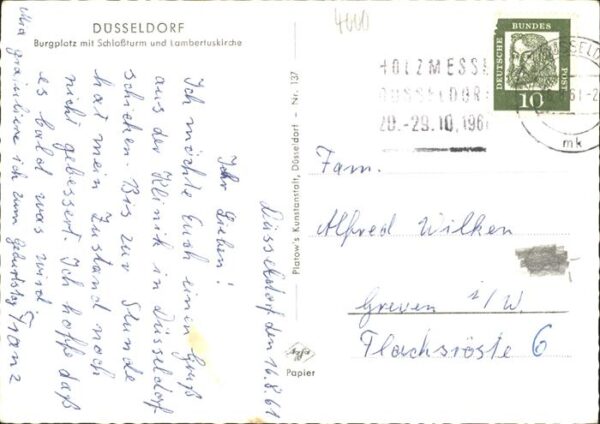 DÜSSELDORF
Burgplatz mit Schloßturm und Lambertuskirche
4000
HOLZMESSE
DÜSSELDORF
20.-29.10.196
DÜSSELDO
61-2
mk
DEUTSCHE
BUNDES
POST
10
Düsseldorf den 16.8.61
Ihr Lieben!
Ich möchte Euch einen Gruß
aus der Klinik in Düsseldorf
schicken. Bis zur Stunde
hat mein Zustand noch
nicht gebessert. Ich hoffe daß
es bald was wird
gratuliere ich zum Geburtstag Franz
Platow's Kunstanstalt, Düsseldorf - Nr. 137
Agfa
Papier
Fam.
Alfred Wilken
Greven i/W.
6